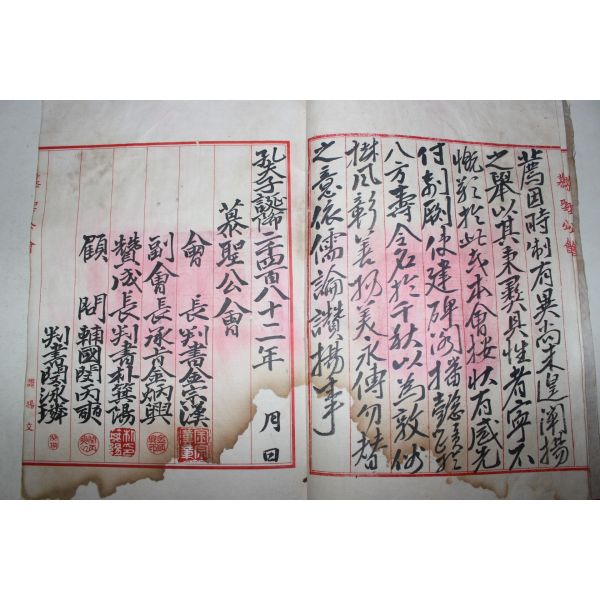 薦因時制有異尚未遑闡揚
之擧以其秉彛具性者寧不
慨歎於此玆本會按狀有感先
付剞劂使建碑閣播懿蹟於
八方壽令名於千秋以爲敦俗
樹風彰善揚美永傳勿替
之意依儒論讚揚事
孔子誕降二千四百八十二年 月 日
慕聖公會
會長判書金宗漢
副會長承旨金炳興
贊成長判書朴箕陽
顧問輔國閔丙奭
判書閔泳璘